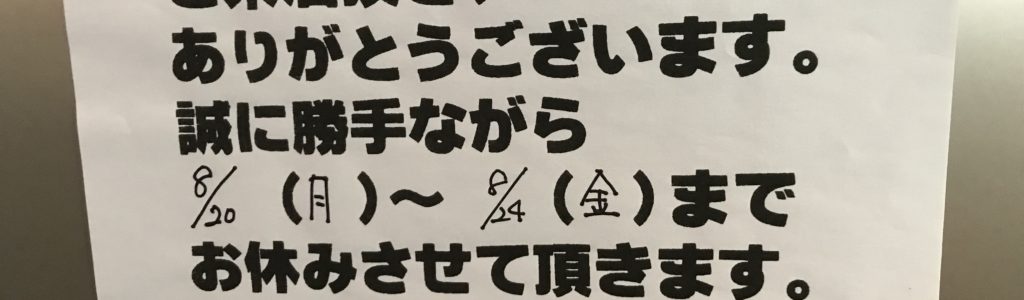 ありがとうございます。
誠に勝手ながら
8/20（月）～8/24（金）まで
お休みさせて頂きます。